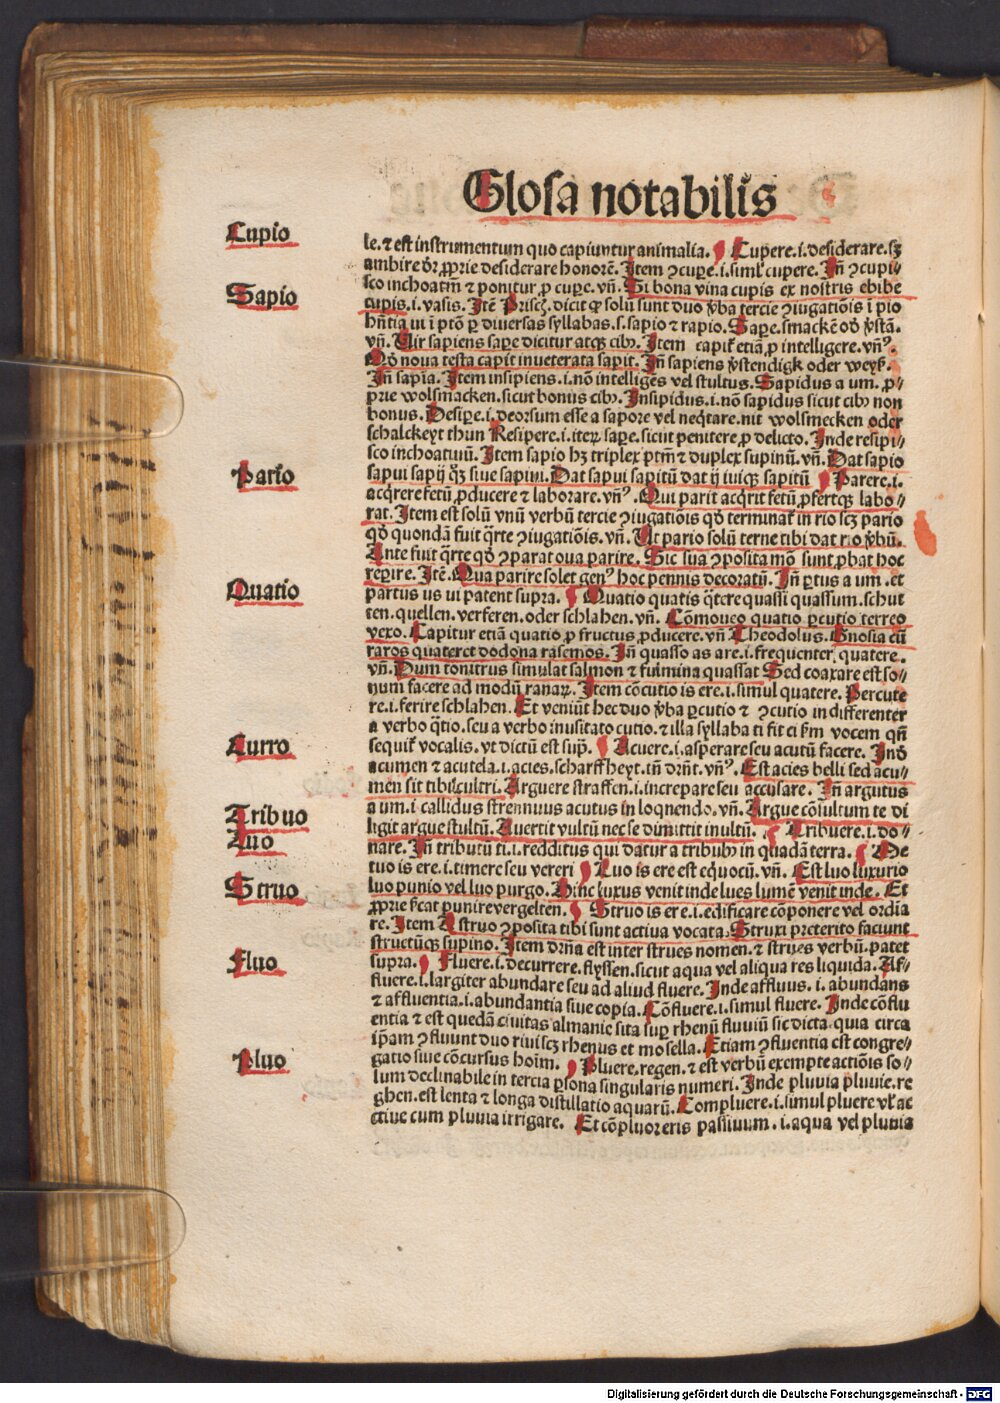 Glosa notabilis
Cupio
le. ⁊ est instrumentum quo capiuntur animalia. Cupere .i. desiderare. sꝫ
ambire dr̄ ꝓprie desiderare honorē. Item ꝯcuꝑe .i. siml̓ cupere. Jn̄ ꝯcupi⸗
sco inchoatiuū ⁊ ponitur ꝓ cuꝑe. vn̄. Si bona vina cupis ex nostris ebibe
Sapio
cupis .i. vasis. Itē Priscꝰ. dicit ꝙ solū sunt duo v̓ba tercie ꝯiugatiōis ī pio
hn̄tia ui ī p̄tō ꝑ diuersas syllabas .s. sapio ⁊ rapio. Saꝑe. smackē od̓ v̓stā.
vn̄. Uir sapiens sape dicitur atqꝫ cibꝰ. Item capit̄ etiā ꝓ intelligere. vn̄ꝰ.
Qd̓ noua testa capit inueterata sapit. Jn̄ sapiens v̓stendigk oder weyß.
Jn̄ sapīa. Item insipiens .i. nō intelligēs vel stultus. Sapidus a um. ꝓ⸗
prie wolsmacken. sicut bonus cibꝰ. Insipidus .i. nō sapidus sicut cibꝰ non
bonus. Desiꝑe .i. deorsum esse a sapore vel neq̄tare. nit wolsmecken oder
schalckeyt thun Resipere .i. iteꝝ saꝑe. sicut penitere ꝓ delicto. Inde resipi⸗
sco inchoatiuū. Item sapio hꝫ triplex p̄tm̄ ⁊ duplex supinū. vn̄. Dat sapio
Pario
sapui sapij q̄ꝫ siue sapiui. Dat sapui sapitū dat ij iuiqꝫ sapitū Parere .i.
acq̄rere fetū ꝓducere ⁊ laborare. vn̄ꝰ. Qui parit acq̄rit fetū ꝓfertqꝫ labo⸗
rat. Item est solū vnū verbū tercie ꝯiugatiōis qd̓ terminat̄ in rio scꝫ pario
qd̓ quondā fuit q̄rte ꝯiugatiōis. vn̄. Ut pario solū terne tibi dat rio v̓bū.
Ante fuit q̄rte qd̓ ꝯparat oua parire. Sic sua ꝯposita mō sunt ꝓbat hoc
reꝑire. Itē. Qua parire solet genꝰ hoc pennis decoratū. Jn̄ ꝑtus a um. et
Quatio
partus us ui patent supra. Quatio quatis q̄tere quassi quassum. schut
ten. quellen. verferen. oder schlahen. vn̄. Cōmoueo quatio ꝑcutio terreo
vexo. Capitur etiā quatio ꝓ fructus ꝓducere. vn̄ Theodolus. Gnosia cū
raros quateret dodona racemos. Jn̄ quasso as are .i. frequenter quatere.
vn̄. Dum tonitrus simulat salmon ⁊ fulmina quassat Sed coaxare est so⸗
num facere ad modū ranaꝝ. Item cōcutio is ere .i. simul quatere. Percute
re .i. ferire schlahen. Et veniūt hec duo v̓ba ꝑcutio ⁊ ꝯcutio indifferenter
a verbo q̄tio. seu a verbo inusitato cutio. ⁊ illa syllaba ti fit ci ẜm vocem qn̄
Curro
sequit̄ vocalis. vt dictū est sup̄. Acuere .i. asperare seu acutū facere. Ind̓
acumen ⁊ acutela .i. acies. scharffheyt. tn̄ drn̄t. vn̄ꝰ. Est acies belli sed acu⸗
men sit tibi cultri. Arguere straffen .i. increpare seu accusare. Jn̄ argutus
Tribuo
a um .i callidus strennuus acutus in loqnendo. vn̄. Argue cōsultum te di
ligit argue stultū. Auertit vultū nec se dimittit inultū. Tribuere .i. do⸗
Luo
nare. Jn̄ tributū ti .i. redditus qui datur a tribubꝰ in quadā terra. Me
tuo is ere .i. timere seu vereri Luo is ere est equocū. vn̄. Est luo luxurio
Struo
luo punio vel luo purgo. Hinc luxus venit inde lues lumē venit inde. Et
ꝓprie ſ̓cat punire vergelten. Struo is ere .i. edificare cōponere vel ordia
re. Item A struo ꝯposita tibi sunt actiua vocata. Struxi preterito faciunt
structūqꝫ supino. Item drn̄a est inter strues nomen. ⁊ strues verbū. patet
Fluo
supra. Fluere .i. decurrere. flyssen. sicut aqua vel aliqua res liquida. Af⸗
fluere .i. largiter abundare seu ad aliud fluere. Inde affluus .i. abundans
⁊ affluentia .i. abundantia siue copia. Cōfluere .i. simul fluere. Inde cōflu
entia ⁊ est quedā ciuitas almanie sita suꝑ rhenū fluuiū sic dicta. quia circa
ip̄am ꝯfluunt duo riui scꝫ rhenus et mosella. Etiam ꝯfluentia est congre⸗
Pluo
gatio siue cōcursus hoīm. Pluere. regen. ⁊ est verbū exempte actiōis so⸗
lum declinabile in tercia ꝑsona singularis numeri. Inde pluuia pluuie. re
ghen. est lenta ⁊ longa distillatio aquarū. Compluere .i. simul pluere vl̓ ac
ctiue cum pluuia irrigare. Et cōpluor eris passiuum .i. aqua vel pluuia
Digitalisierung gefördert durch die Deutsche Forschungsgemeinschaft - DFG